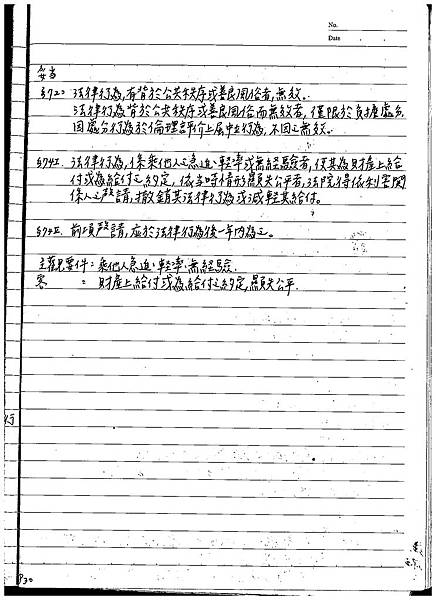 No.
Date
妥当
§72：法律行為,有背於公共秩序或善良風俗者,無效。
法律行為背於公共秩序或善良風俗而無效者,僅限於負擔處分
因處分行為於倫理評价上屬中立行為,不因之無效。
§74I. 法律行為,係乘他人之急迫、輕率或無經驗者,使其為財產上給
付或為給付之約定,依当時情形顯失公平者,法院得依利害関
係人之聲請,撤銷其法律行為或減輕其給付。
§74II. 前項聲請,应於法律行為後一年內為之。
主觀要件：乘他人急迫、輕率、無經驗.
客 ：財產上給付或為給付之約定,顯失公平.
行